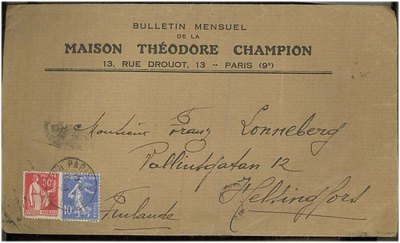 BULLETIN MENSUEL
DE LA
MAISON THÉODORE CHAMPION
13, RUE DROUOT, 13 — PARIS (9e)
Monsieur Franz Lonneberg
Pälliusgatan 12
Helsingfors
Finlande
50c
10